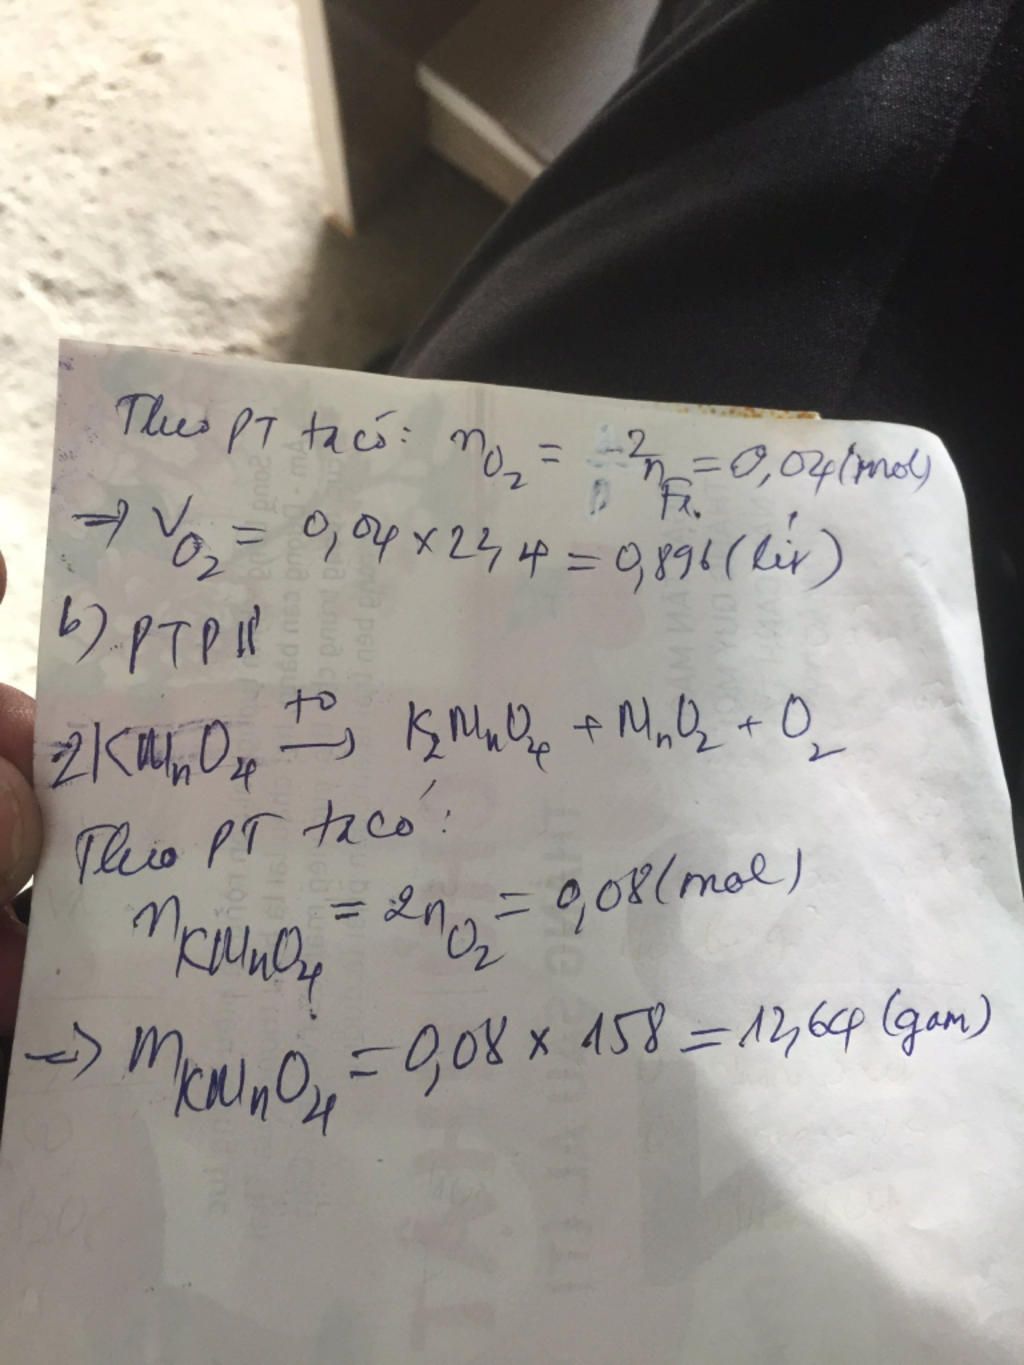 Theo PT ta có: nO₂ = 2nFe = 0,04 (mol)
=> VO₂ = 0,04 x 22,4 = 0,896 (lít)
b) PTPƯ
2KMnO₄ t° → K₂MnO₄ + MnO₂ + O₂
Theo PT ta có:
nKMnO₄ = 2nO₂ = 0,08 (mol)
=> mKMnO₄ = 0,08 x 158 = 12,64 (gam)